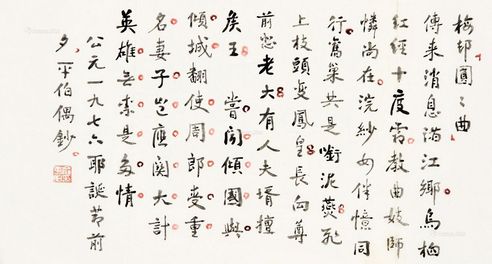 梅邨圓〻曲
傳来消息滿江鄉烏桕
紅經十度霜教曲妓師
憐尚在浣紗女伴憶同
行舊巢共是銜泥燕飛
上枝頭變鳳皇長向尊
前悲老大有人夫壻擅
矦王 嘗聞傾國與
傾城翻使周郎受重
名妻子豈應關大計
英雄無奈是多情
公元一九七六耶誕節前
夕 平伯偶鈔